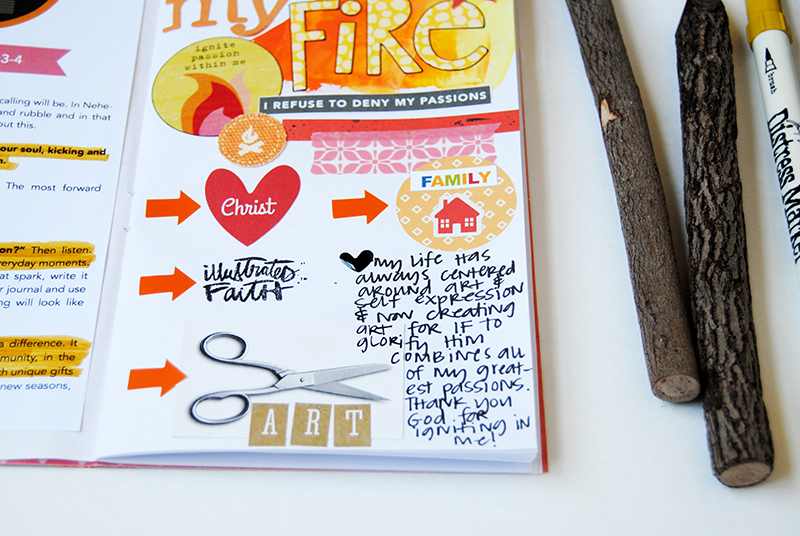 3-4
calling will be. In Nehe-
and rubble and in that
out this.
our soul, kicking and
The most forward
on?" Then listen.
everyday moments.
at spark, write it
journal and use
ng will look like
a difference. It
munity, in the
ch unique gifts
new seasons,
my
FiRe
ignite
passion
within me
I REFUSE TO DENY MY PASSIONS
Christ
FAMILY
illustrated
FAITH
ART
my life HAS
always centered
around art &
self expression
& now creating
art for IF to
glorify Him
combines all
of my great-
est passions.
Thank you
God for
igniting in
me!
brush
Distress Marker